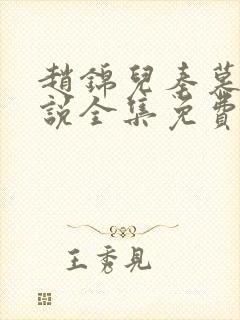 趙錦兒秦慕
說全集免費
王秀見